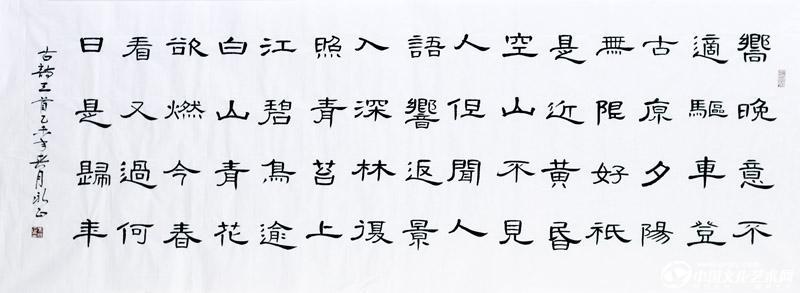 嚮晚意不
適驅車登
古原夕陽
無限好祇
是近黄昏
空山不見
人但聞人
語響返景
入深林復
照青苔上
江碧鳥逾
白山青花
欲燃今春
看又過何
日是歸年
古詩三首乙未年月
中国文化艺术网